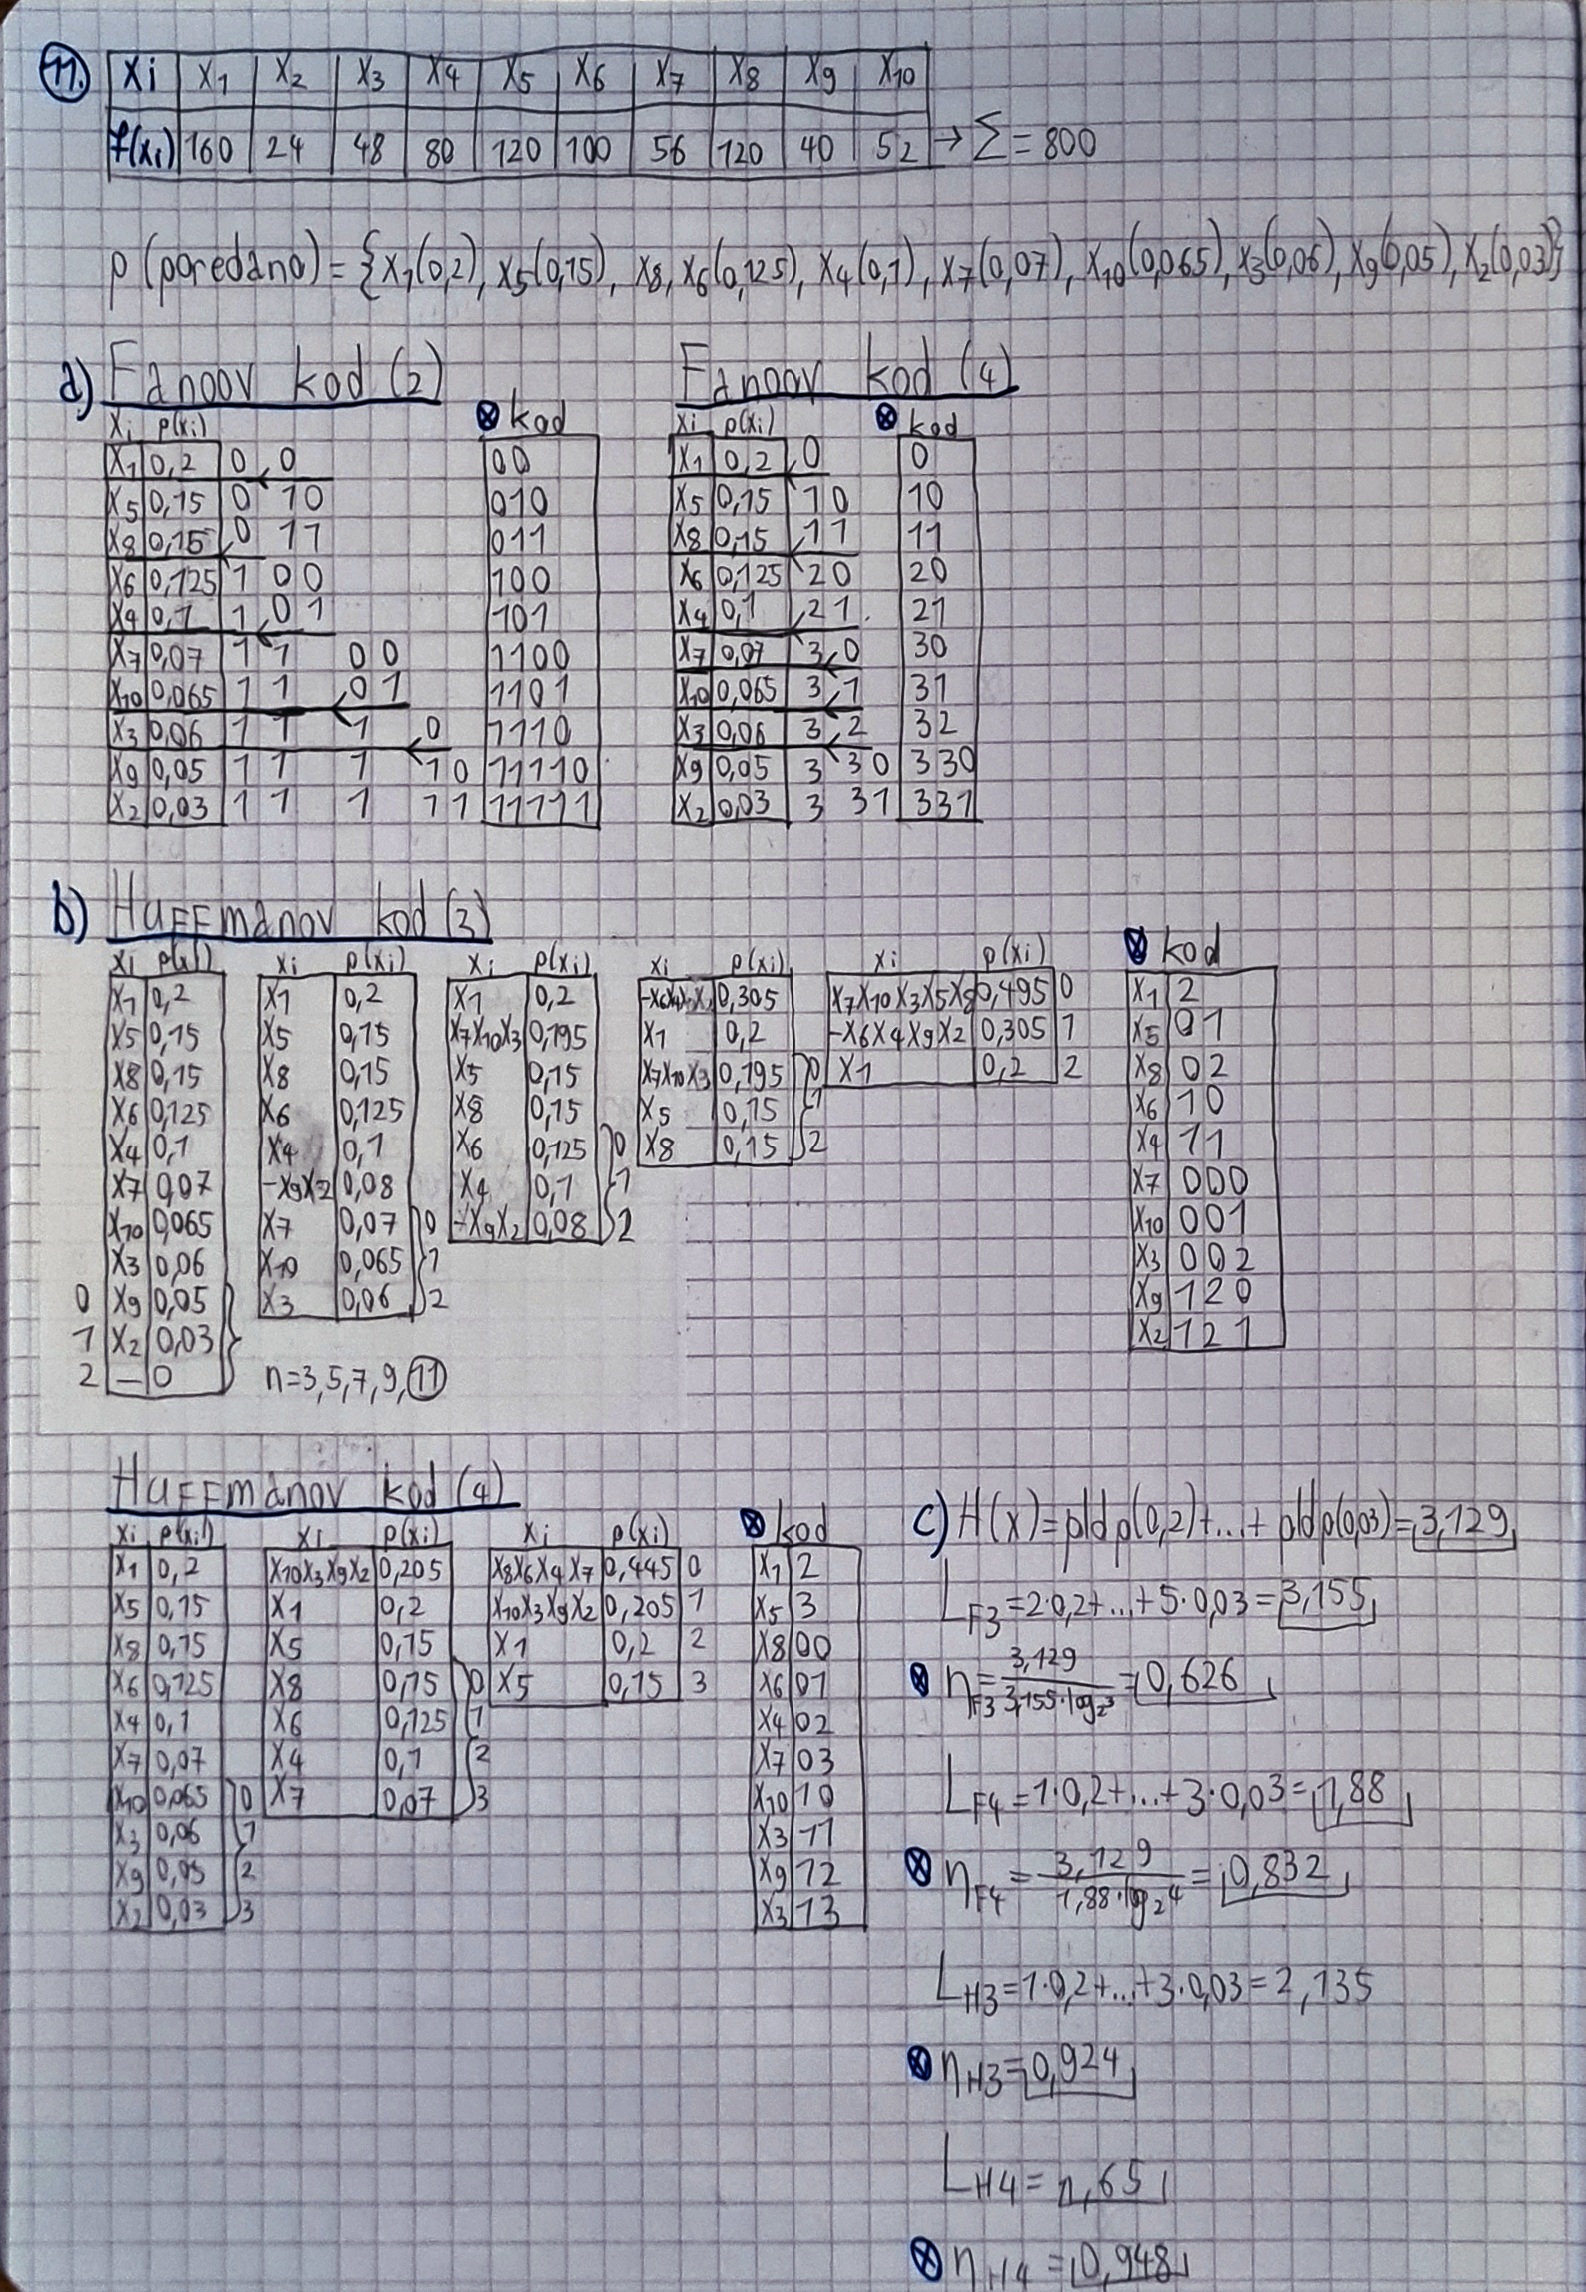 11. Xi X1 X2 X3 X4 X5 X6 X7 X8 X9 X10
f(xi) 160 24 48 80 120 100 56 120 40 52 → Σ = 800
p (poredano) = {X1(0,2), X5(0,15), X8, X6(0,125), X4(0,1), X7(0,07), X10(0,065), X3(0,06), X9(0,05), X2(0,03)}
a) Fanoov kod (2)
Xi p(xi) ⊗ kod
X1 0,2 0 0 00
X5 0,15 0 10 010
X8 0,15 0 11 011
X6 0,125 1 00 100
X4 0,1 1 01 101
X7 0,07 1 1 0 0 1100
X10 0,065 1 1 0 1 1101
X3 0,06 1 1 1 0 1110
X9 0,05 1 1 1 1 0 11110
X2 0,03 1 1 1 1 1 11111
Fanoov kod (4)
Xi p(xi) ⊗ kod
X1 0,2 0 0
X5 0,15 1 0 10
X8 0,15 1 1 11
X6 0,125 2 0 20
X4 0,1 2 1 21
X7 0,07 3 0 30
X10 0,065 3 1 31
X3 0,06 3 2 32
X9 0,05 3 3 0 330
X2 0,03 3 3 1 331
b) Huffmanov kod (3)
Xi p(xi)
X1 0,2
X5 0,15
X8 0,15
X6 0,125
X4 0,1
X7 0,07
X10 0,065
X3 0,06
0 X9 0,05
1 X2 0,03
2 — 0
Xi p(xi)
X1 0,2
X5 0,15
X8 0,15
X6 0,125
X4 0,1
-X9X2 0,08
X7 0,07 0
X10 0,065 1
X3 0,06 2
n=3,5,7,9,11
Xi p(xi)
X1 0,2
X7X10X3 0,195
X5 0,15
X8 0,15
X6 0,125 0
X4 0,1 1
-X9X2 0,08 2
Xi p(xi)
0,305
X1 0,2
X7X10X3 0,195 0
X5 0,15 1
X8 0,15 2
Xi p(xi)
X7X10X3X5X8 0,495 0
-X6X4X9X2 0,305 1
X1 0,2 2
⊗ kod
X1 2
X5 01
X8 02
X6 10
X4 11
X7 000
X10 001
X3 002
X9 120
X2 121
Huffmanov kod (4)
Xi p(xi)
X1 0,2
X5 0,15
X8 0,15
X6 0,125
X4 0,1
X7 0,07
X10 0,065 0
X3 0,06 1
X9 0,05 2
X2 0,03 3
Xi p(xi)
X10X3X9X2 0,205
X1 0,2
X5 0,15
X8 0,15 0
X6 0,125 1
X4 0,1 2
X7 0,07 3
Xi p(xi)
X8X6X4X7 0,445 0
X10X3X9X2 0,205 1
X1 0,2 2
X5 0,15 3
⊗ kod
X1 2
X5 3
X8 00
X6 01
X4 02
X7 03
X10 10
X3 11
X9 12
X3 13
c) H(x) = pldp(0,2)+...+ pldp(0,03) = 3,129
LF3 = 2·0,2+...+5·0,03 = 3,155
⊗ ηF3 = 3,129 / 3,155·log2 3 = 0,626
LF4 = 1·0,2+...+3·0,03 = 1,88
⊗ ηF4 = 3,129 / 1,88·log2 4 = 0,832
LH3 = 1·0,2+...+3·0,03 = 2,135
⊗ ηH3 = 0,924
LH4 = 1,65
⊗ ηH4 = 0,948